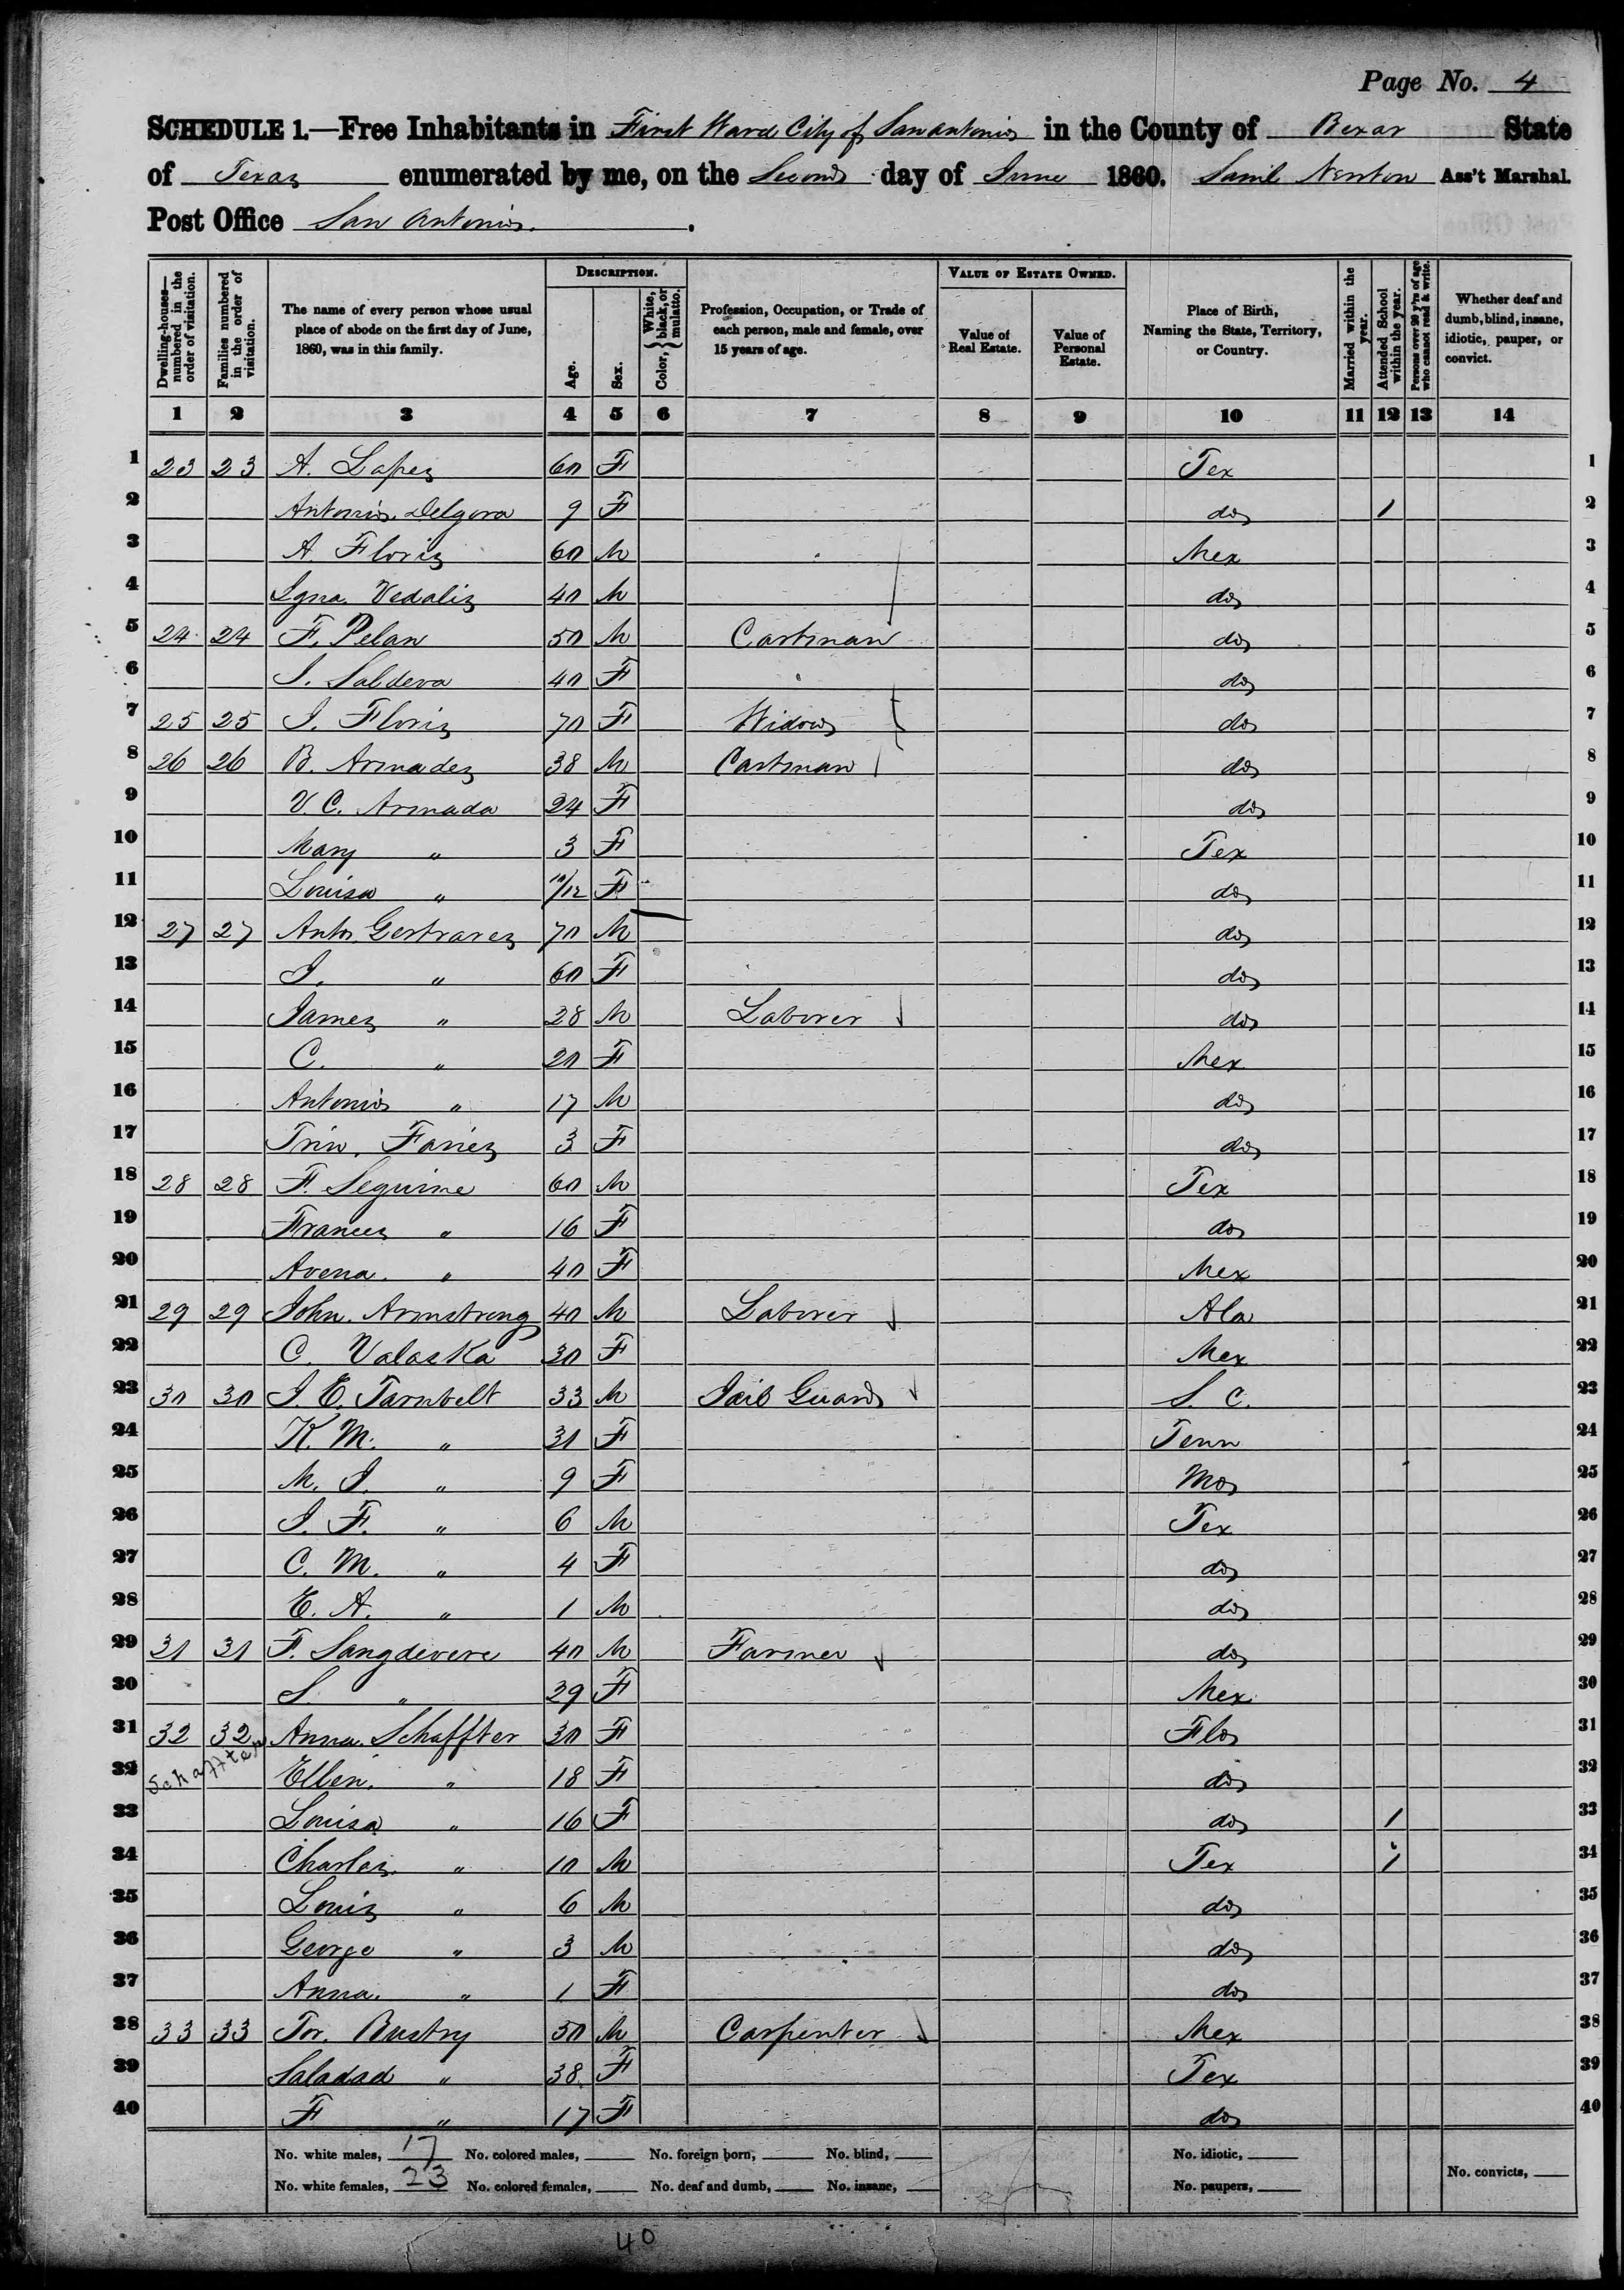 Page No. 4
SCHEDULE 1.—Free Inhabitants in First Ward City of San Antonio in the County of Bexar State
of Texas enumerated by me, on the Second day of June 1860. Saml Newton Ass't Marshal.
Post Office San Antonio.
Dwelling-houses—numbered in the order of visitation. Families numbered in the order of visitation. The name of every person whose usual place of abode on the first day of June, 1860, was in this family. DESCRIPTION. Age. Sex. Color, { White, black, or mulatto. Profession, Occupation, or Trade of each person, male and female, over 15 years of age. VALUE OF ESTATE OWNED. Value of Real Estate. Value of Personal Estate. Place of Birth, Naming the State, Territory, or Country. Married within the year. Attended School within the year. Persons over 20 y'rs of age who cannot read & write. Whether deaf and dumb, blind, insane, idiotic, pauper, or convict.
1 2 3 4 5 6 7 8 9 10 11 12 13 14
1 23 23 A. Lopez 60 F Tex 1
2 Antonio Delgora 9 F do 1 2
3 A Floriz 60 M Mex 3
4 Igna. Vedaliz 40 M do 4
5 24 24 F. Pelan 50 M Cartman do 5
6 J. Saldeva 40 F do 6
7 25 25 J. Floriz 70 F Widow do 7
8 26 26 B. Armadez 38 M Cartman do 8
9 V. C. Armada 24 F do 9
10 Mary " 3 F Tex 10
11 Louisa " 10/12 F do 11
12 27 27 Anto. Gertrarez 70 M do 12
13 J. " 60 F do 13
14 James " 28 M Laborer do 14
15 C. " 20 F Mex 15
16 Antonio " 17 M do 16
17 Trin. Fariez 3 F do 17
18 28 28 F. Seguine 60 M Tex 18
19 Frances " 16 F do 19
20 Avena. " 40 F Mex 20
21 29 29 John. Armstrong 40 M Laborer Ala 21
22 C. Valaska 30 F Mex 22
23 30 30 J. E. Tarnbelt 33 M Jail Guard S. C. 23
24 K. M. " 31 F Tenn 24
25 M. J. " 9 F Mo 25
26 J. F. " 6 M Tex 26
27 C. M. " 4 F do 27
28 E. A. " 1 M do 28
29 31 31 F. Sangdevere 40 M Farmer do 29
30 S. " 29 F Mex 30
31 32 32 Anna. Schaffter 30 F Flo 31
Schaffter
32 Ellen. " 18 F do 32
33 Louisa " 16 F do 1 33
34 Charles. " 10 M Tex 1 34
35 Louis " 6 M do 35
36 George " 3 M do 36
37 Anna. " 1 F do 37
38 33 33 Tor. Bustry 50 M Carpenter Mex 38
39 Saladad " 38 F Tex 39
40 F " 17 F do 40
No. white males, 17 No. colored males, No. foreign born, No. blind, No. idiotic,
No. white females, 23 No. colored females, No. deaf and dumb, No. insane, No. paupers, No. convicts,
40